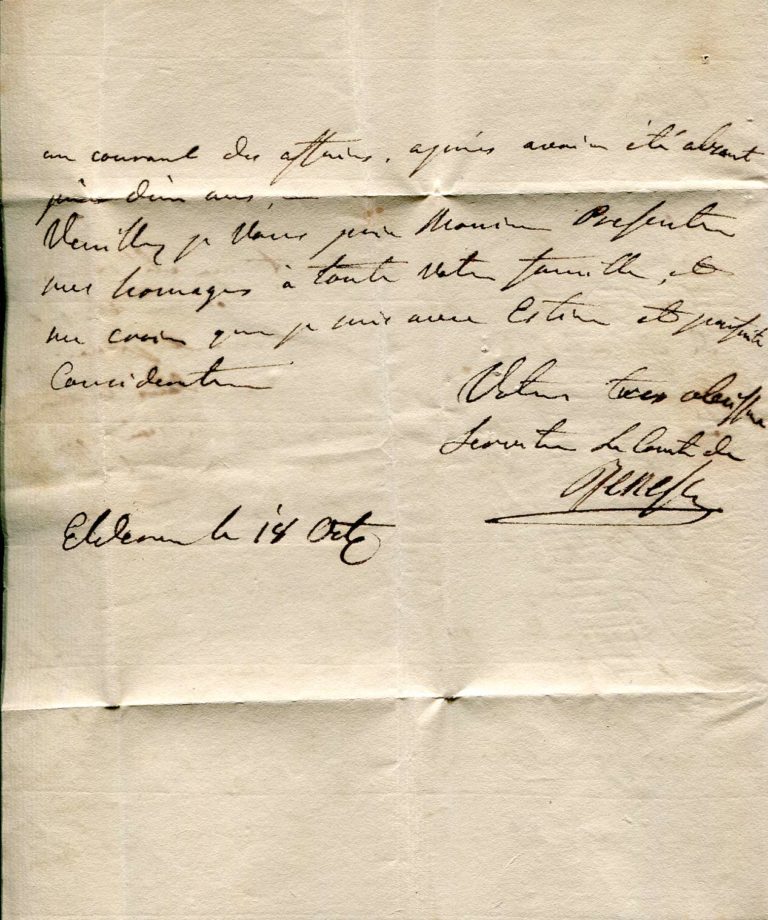 au courant des affaires, après avoir été absent
près d'un ans,
Veuillez je Vous prie Monsieur Presenter
mes homages à toute Votre famille, et
me croire que je suis avec Estime et parfaite
Consideration
Votre tres obeissant
Serviteur Le Comte de
Renesse
le 18 Octb